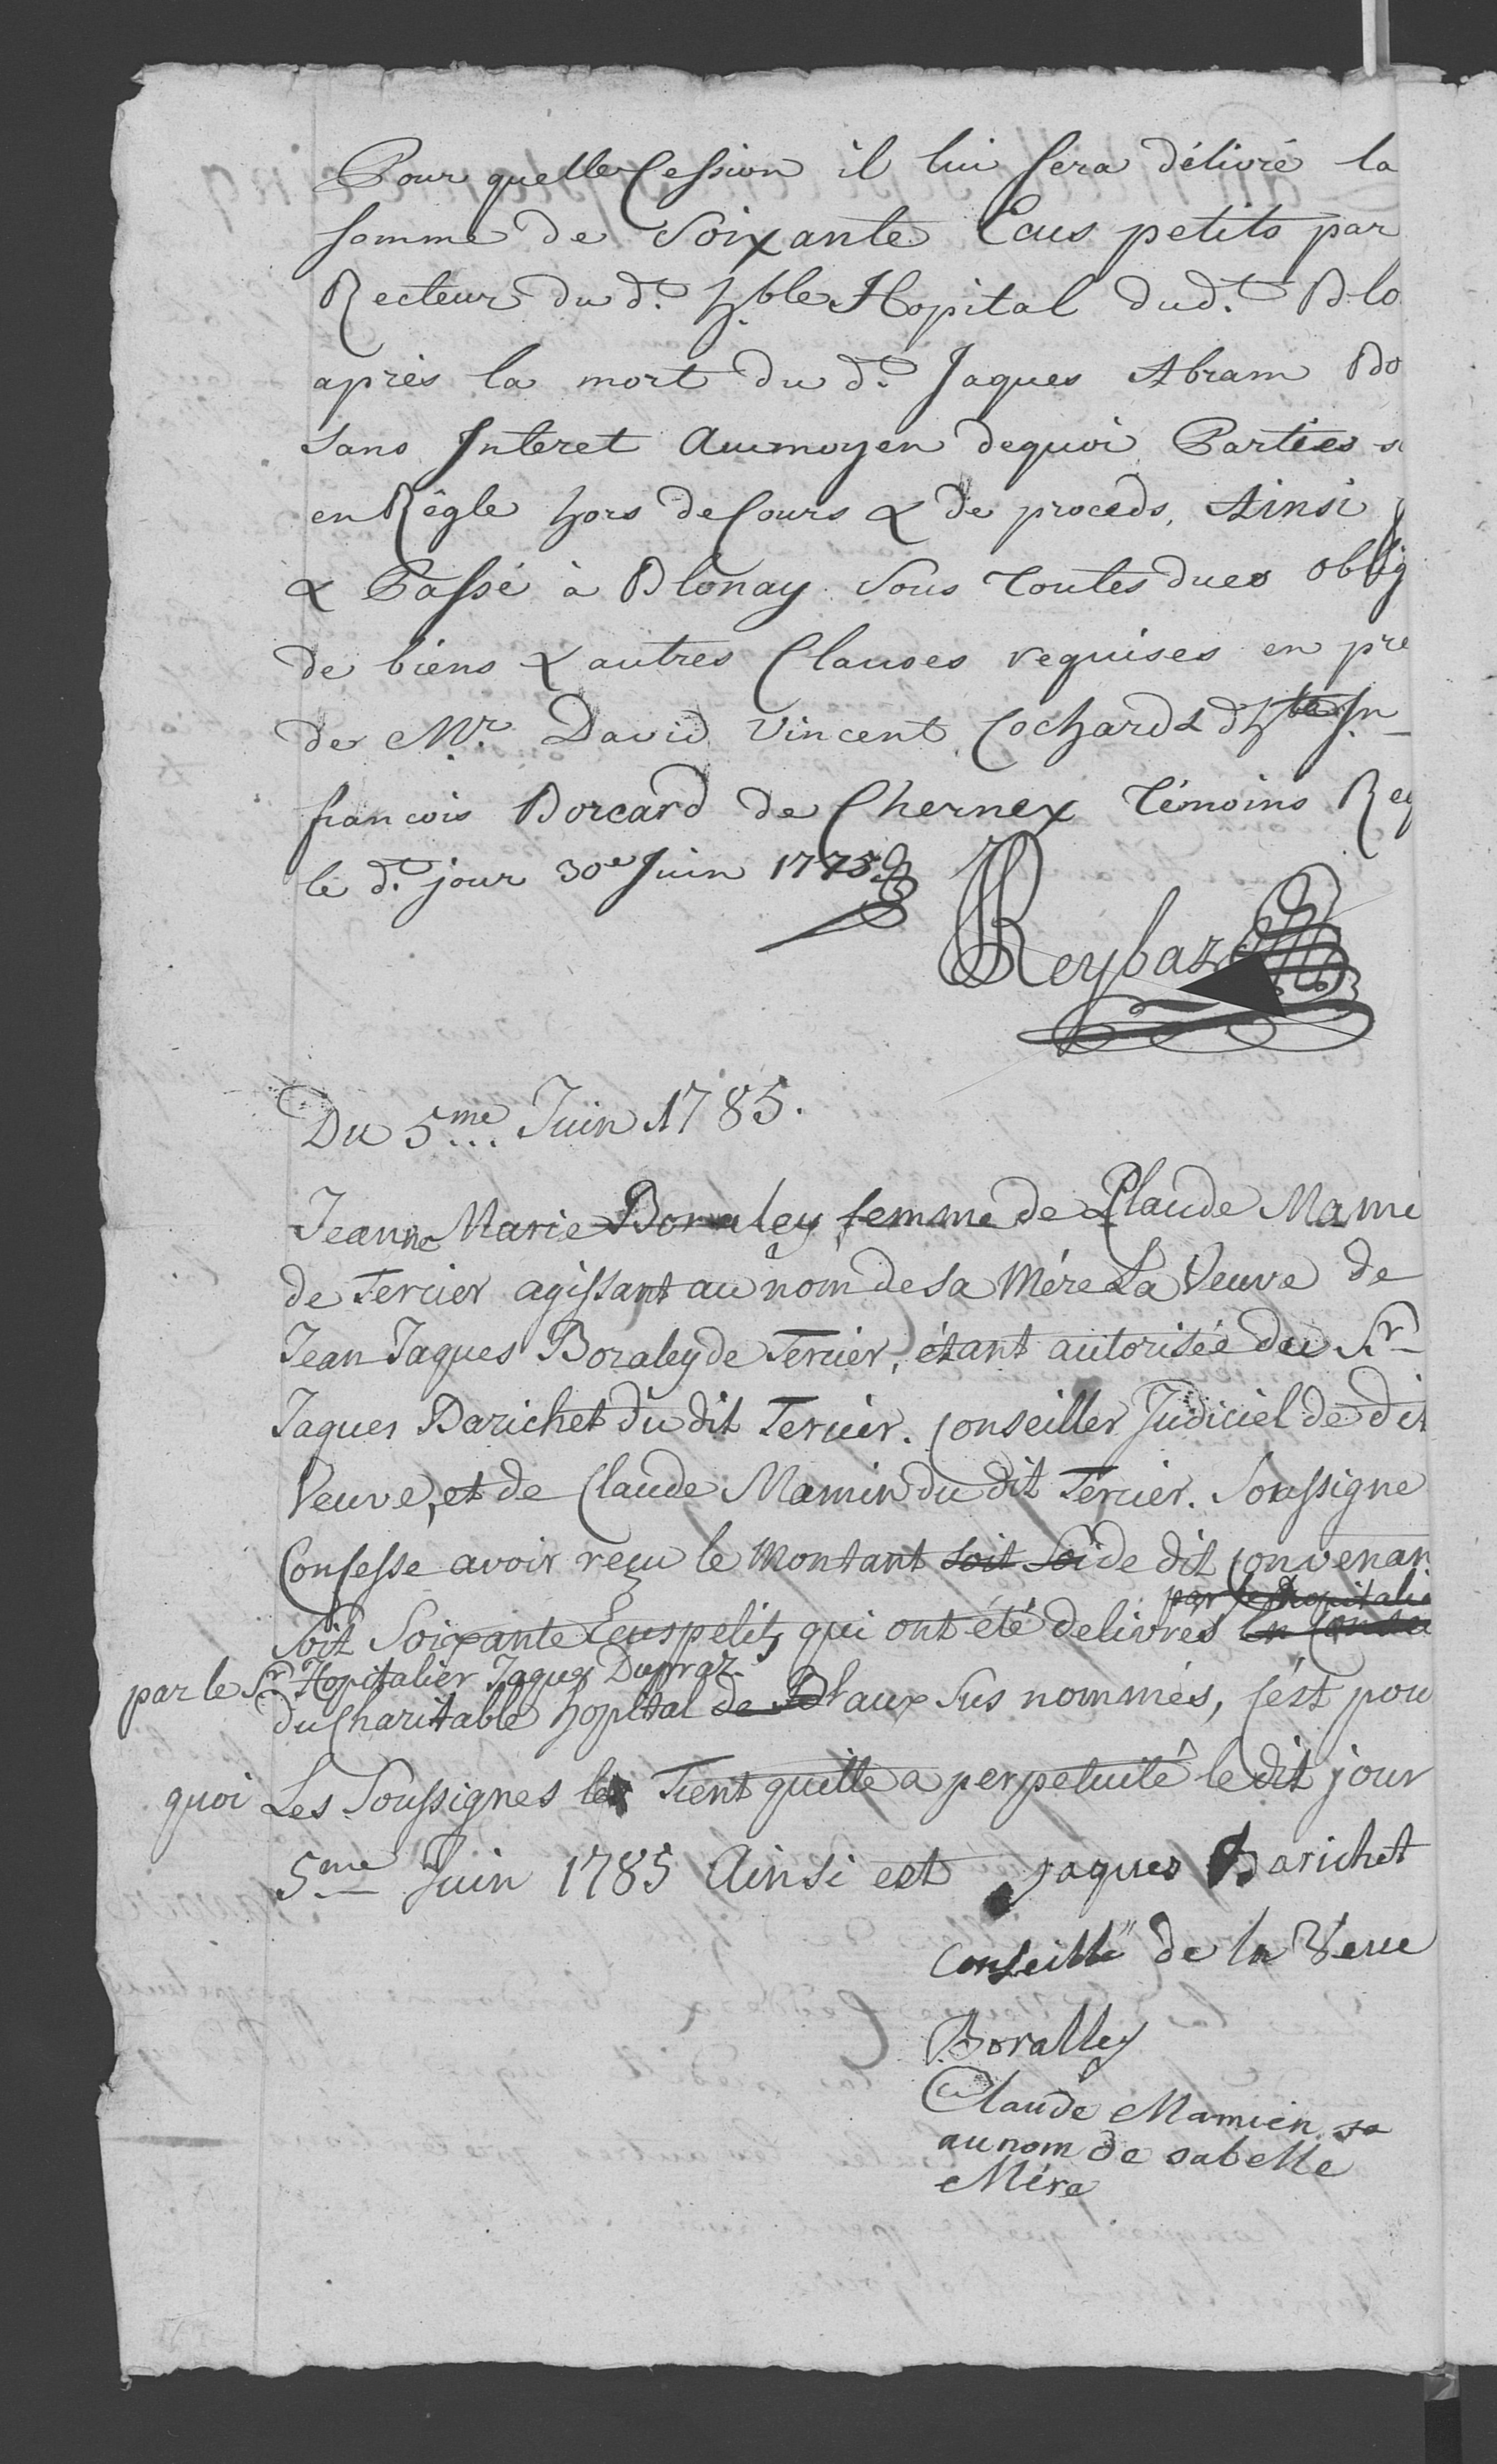 Pour quelle Cession il lui sera délivré la
somme de Soixante Ecus petits par
Recteur du d.t h.ble Hopital dud.t Blo
après la mort du d.t Jaques Abram Bo
sans Interet Aumoyen dequoi Parties s
en Règle hors de Cours & de proceds, Ainsi
& Passé à Blonay sous toutes dues oblig
de biens & autres Clauses requises en pre
de Mr. David Vincent Cochard &
francois Borcard de Chernex Témoins Req
le d.t jour 30e Juin 1775
Reybaz
Du 5.me Juin 1785.
Jeanne Marie Boraley femme de Claude Mami
de Tercier agissant au nom de sa Mére La Veuve de
Jean Jaques Boraley de Tercier, étant autorisée du Sr
Jaques Barichet du dit Tercier. Conseiller Judiciel de dit
Veuve, et de Claude Mamin du dit Tercier. Soussigne
Confesse avoir reçu le Montant soit de dit Convenan
par le hopitalie
Soit Soixante Ecus petits qui ont été delivres en
par le Sr Hopitalier Jaques Dupraz
du Charitable hopital de Bl aux sus nommés, c'ést pou
quoi Les Soussignes les Tient quitte a perpetuité le dit jour
5me Juin 1785 Ainsi est Jaques Barichet
Conseille de la Veue
Boralley
Claude Mamien
au nom de sa belle
Mére